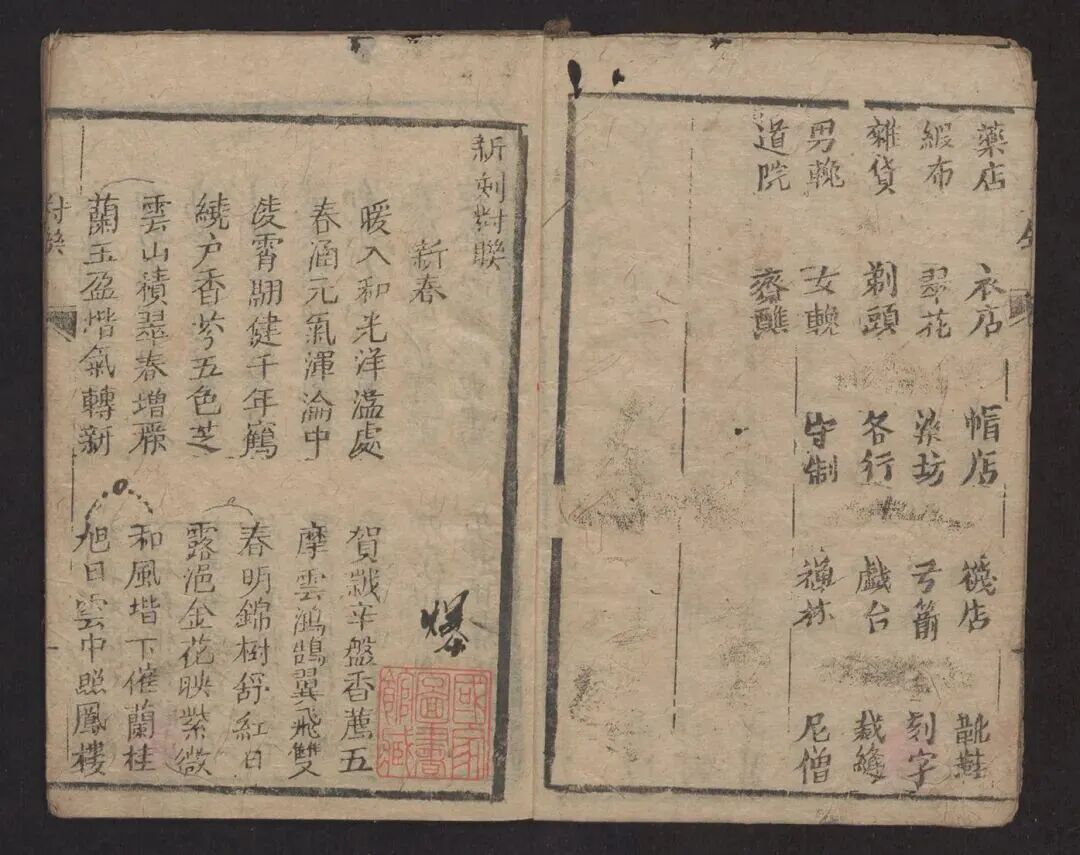 藥店 衣店 帽店 襪店 靴鞋
緞布 翠花 染坊 弓箭 刻字
雜貨 剃頭 各行 戲台 裁縫
男輓 女輓 守制 禪林 尼僧
道院 齋醮
新刻对聯
新春 爆
暖入和光洋溢處 賀歲辛盤香薦五
春涵元氣渾淪中 摩雲鴻鵠翼飛雙
凌霄翮健千年鶴 春明錦樹舒紅日
繞户香芬五色芝 露浥金花映紫微
雲山積翠春增麗 和風堦下催蘭桂
蘭玉盈堦氣轉新 旭日雲中照鳳樓
对聯
國家圖書館藏